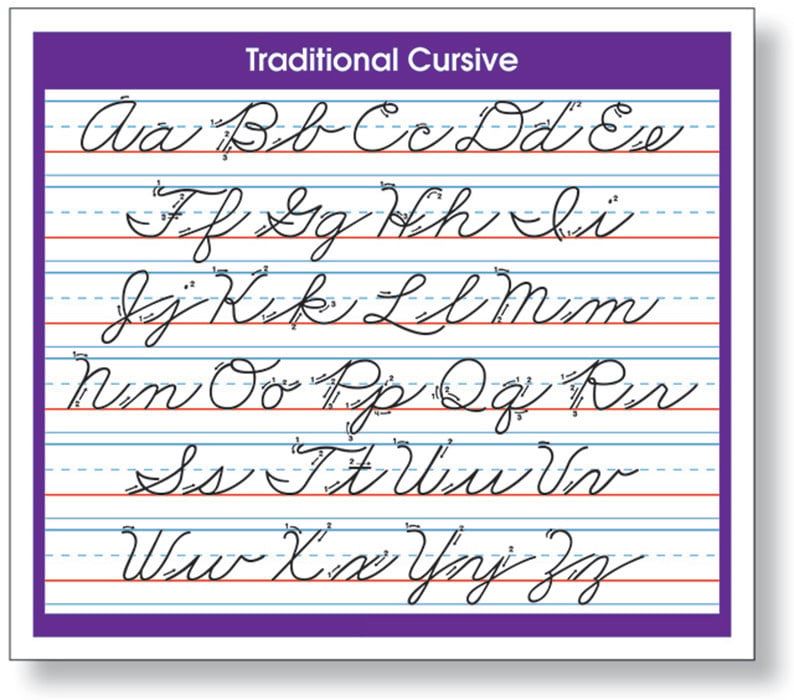 Traditional Cursive
Aa Bb Cc Dd Ee
Ff Gg Hh Ii
Jj Kk Ll Mm
Nn Oo Pp Qq Rr
Ss Tt Uu Vv
Ww Xx Yy Zz